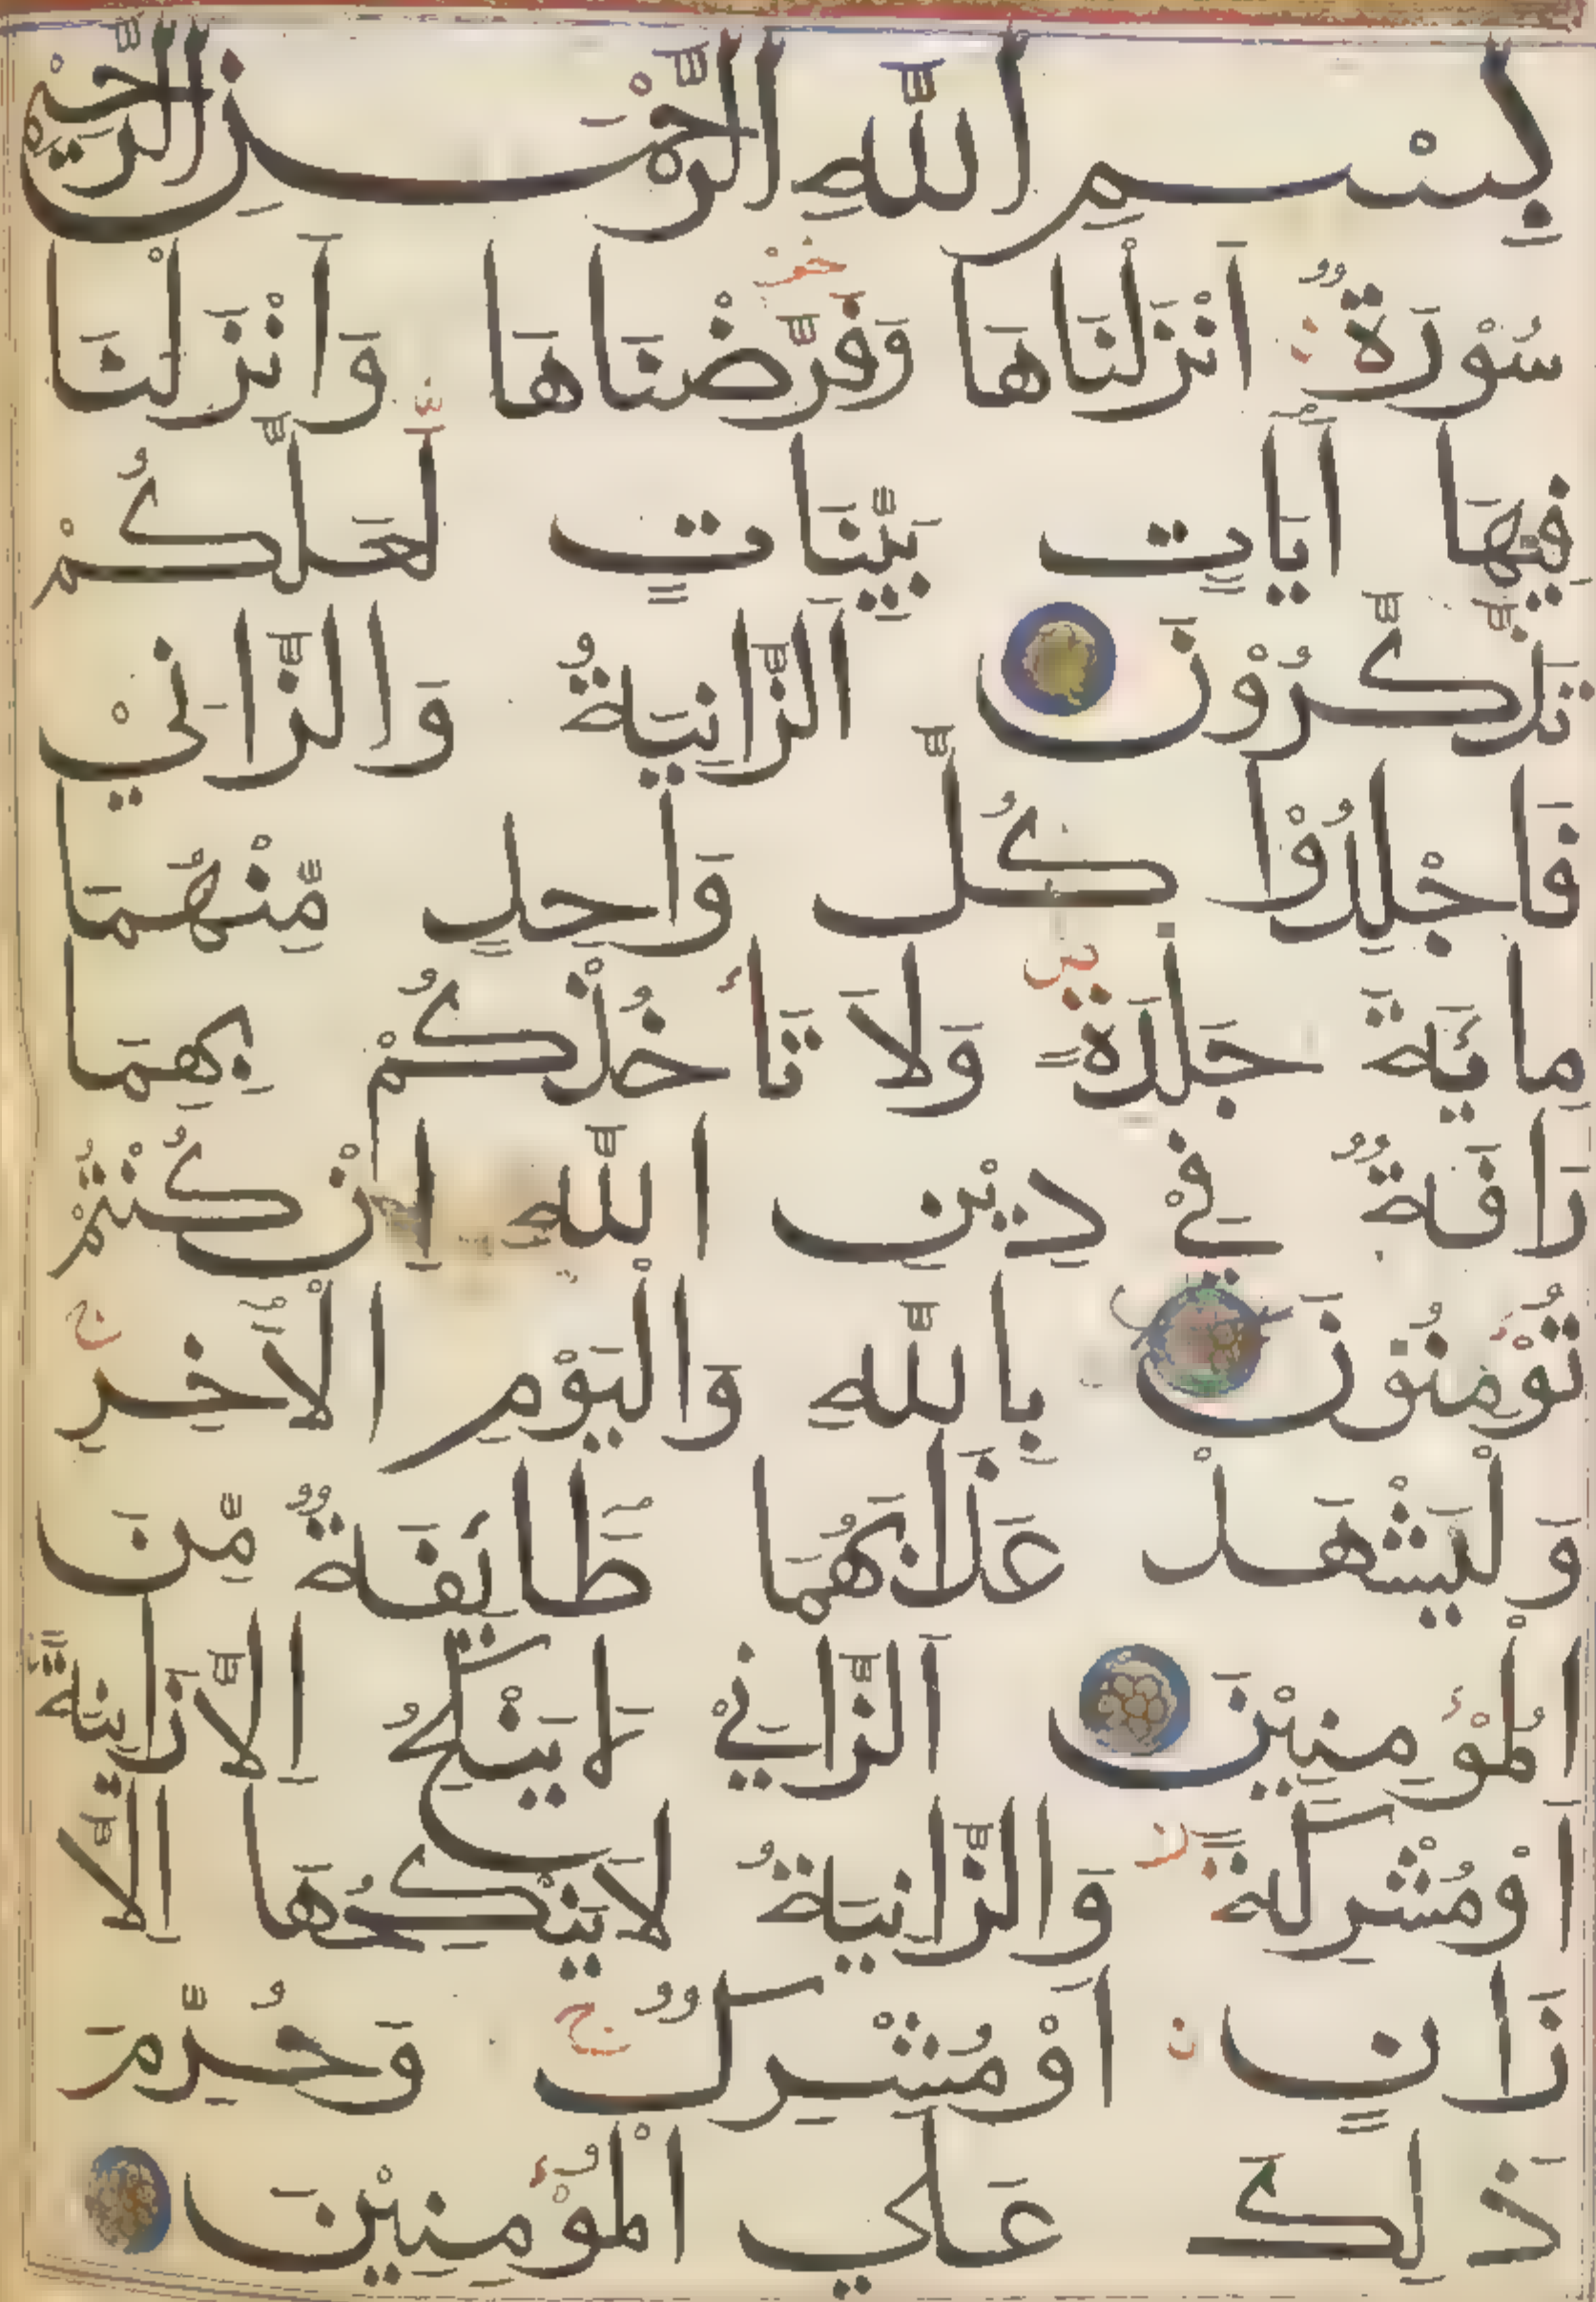 بِسْمِ اللَّهِ الرَّحْمَنِ الرَّحِيْمِ
سُوْرَةٌ اَنْزَلْنَاهَا وَفَرَّضْنَاهَا وَاَنْزَلْنَا
فِيْهَا اٰيَاتٍ بَيِّنَاتٍ لَّعَلَّكُمْ
تَذَّكَّرُوْنَ اَلزَّانِيَةُ وَالزَّانِيْ
فَاجْلِدُوْا كُلَّ وَاحِدٍ مِّنْهُمَا
مِائَةَ جَلْدَةٍ وَلَا تَأْخُذْكُمْ بِهِمَا
رَافَةٌ فِيْ دِيْنِ اللَّهِ اِنْ كُنْتُمْ
تُؤْمِنُوْنَ بِاللَّهِ وَالْيَوْمِ الْاٰخِرِ
وَلْيَشْهَدْ عَذَابَهُمَا طَائِفَةٌ مِّنَ
الْمُؤْمِنِيْنَ اَلزَّانِيْ لَا يَنْكِحُ اِلَّا زَانِيَةً
اَوْمُشْرِكَةً وَالزَّانِيَةُ لَايَنْكِحُهَا اِلَّا
زَانٍ اَوْمُشْرِكٌ وَحُرِّمَ
ذَلِكَ عَلَي الْمُؤْمِنِيْنَ